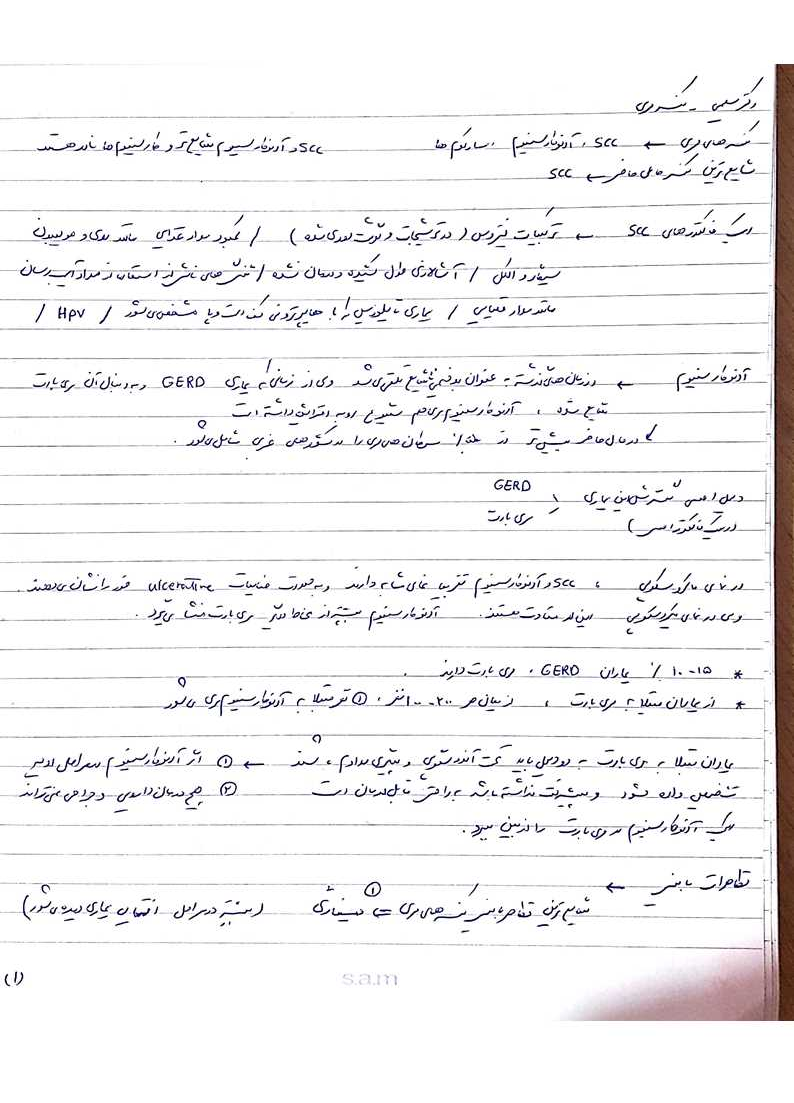 دکتر سلیمی - کنسر مری
کنسرهای مری ← SCC ، آدنوکارسینوم ، سارکوم ها    SCC و آدنوکارسینوم شایع تر و کارسینوم ها نادر هستند
شایع ترین کنسر حال حاضر ← SCC
ریسک فاکتورهای SCC ← ترکیبات نیتروس (در ترشیجات و گوشت دودی شده) / کمبود مواد غذایی مانند روی و مولیبدن
سیگار و الکل / آشالازی طول کشیده و درمان نشده / تنگی های ناشی از استفاده از مواد آسیب رسان
مانند مواد قلیایی / بیماری تایلوزیس که با هایپرکراتوز کف دست و پا مشخص می شود / HPV /
آدنوکارسینوم ← در زمان های گذشته به عنوان بدخیمی شایع تلقی نمی شد ولی از زمانی که بیماری GERD و به دنبال آن مری بارت
شایع شده ، آدنوکارسینوم مری هم شیوع رو به افزایش داشته است
در حال حاضر بیش تر از ۵۰٪ سرطان های مری را در کشورهای غربی شامل می شود .
دلیل اصلی گسترش این بیماری    GERD
(ریسک فاکتور اصلی)    مری بارت
در نمای ماکروسکوپی ، SCC و آدنوکارسینوم تقریبا نمای مشابه دارند و به صورت ضایعات ulcerative خود را نشان می دهند .
ولی در نمای میکروسکوپی این دو متفاوت هستند . آدنوکارسینوم بیشتر از مری بارت منشا می گیرد .
* ۱۰-۱۵ ٪ بیماران GERD ، مری بارت دارند .
* از بیماران مبتلا به مری بارت ، از میان هر ۲۰۰-۱۰۰ نفر ، ① نفر مبتلا به آدنوکارسینوم مری می شود
بیماران مبتلا به مری بارت به دو دلیل باید تحت آندوسکوپی و پیگیری مداوم باشند ← ① اگر آدنوکارسینوم در مراحل اولیه
تشخیص داده شود و پیشرفت نداشته باشد به راحتی قابل درمان است    ② هیچ درمان دارویی و جراحی نمی تواند
ریسک آدنوکارسینوم در مری بارت را از بین ببرد .
تظاهرات بالینی ←
① شایع ترین تظاهر بالینی کنسرهای مری = دیسفاژی (بیشتر در مراحل انتهایی بیماری دیده می شود)
(۱)
s.a.m